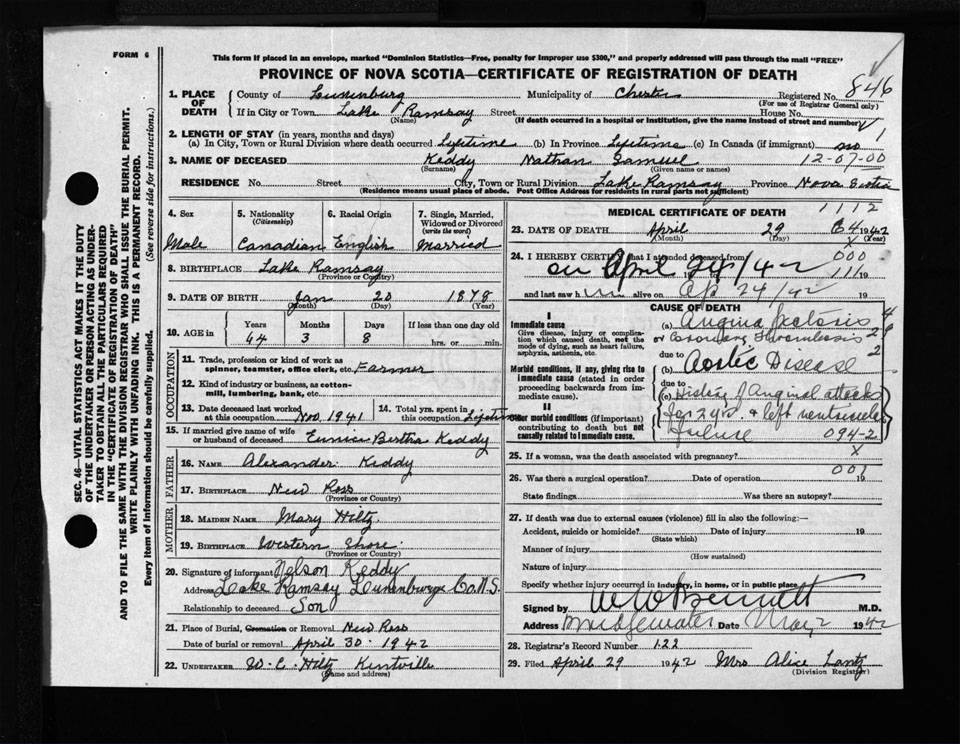 FORM 6
This form if placed in an envelope, marked "Dominion Statistics—Free, penalty for improper use $300," and properly addressed will pass through the mail "FREE"
PROVINCE OF NOVA SCOTIA—CERTIFICATE OF REGISTRATION OF DEATH
SEC. 46—VITAL STATISTICS ACT MAKES IT THE DUTY
OF THE UNDERTAKER OR PERSON ACTING AS UNDER-
TAKER TO OBTAIN ALL THE PARTICULARS REQUIRED
IN THE "CERTIFICATE OF REGISTRATION OF DEATH"
AND TO FILE THE SAME WITH THE DIVISION REGISTRAR WHO SHALL ISSUE THE BURIAL PERMIT.
WRITE PLAINLY WITH UNFADING INK. THIS IS A PERMANENT RECORD.
Every item of information should be carefully supplied. (See reverse side for instructions.)
1. PLACE OF DEATH County of Lunenburg Municipality of Chester Registered No. 846
(For use of Registrar General only)
If in City or Town Lake Ramsay Street House No.
(Name) (If death occurred in a hospital or institution, give the name instead of street and number)
1
2. LENGTH OF STAY (in years, months and days)
(a) In City, Town or Rural Division where death occurred Lifetime (b) In Province Lifetime (c) In Canada (if immigrant) no
3. NAME OF DECEASED Keddy Nathan Samuel 12-07-00
(Surname) (Given name or names)
RESIDENCE No. Street City, Town or Rural Division Lake Ramsay Province Nova Scotia
(Residence means usual place of abode. Post Office Address for residents in rural parts not sufficient)
4. Sex Male
5. Nationality (Citizenship) Canadian
6. Racial Origin English
7. Single, Married, Widowed or Divorced (write the word) Married
8. BIRTHPLACE Lake Ramsay
(Province or Country)
9. DATE OF BIRTH Jan 20 1878
(Month) (Day) (Year)
10. AGE in Years Months Days If less than one day old
64 3 8 hrs. or min.
OCCUPATION
11. Trade, profession or kind of work as spinner, teamster, office clerk, etc. Farmer
12. Kind of industry or business, as cotton-mill, lumbering, bank, etc.
13. Date deceased last worked at this occupation Nov. 1941
14. Total yrs. spent in this occupation Lifetime
15. If married give name of wife or husband of deceased Eunice Bertha Keddy
FATHER
16. NAME Alexander Keddy
17. BIRTHPLACE New Ross
(Province or Country)
MOTHER
18. MAIDEN NAME Mary Hiltz
19. BIRTHPLACE Western Shore
(Province or Country)
20. Signature of informant Nelson Keddy
Address Lake Ramsay Lunenburg Co. N.S.
Relationship to deceased Son
21. Place of Burial, Cremation or Removal New Ross
Date of burial or removal April 30 1942
22. UNDERTAKER W. C. Hiltz Kentville
(Name and address)
MEDICAL CERTIFICATE OF DEATH 1112
23. DATE OF DEATH April 29 64 1942
(Month) (Day) (Year)
X
24. I HEREBY CERTIFY that I attended deceased from 000
on April 24/42 111 19
and last saw him alive on Ap. 24/42 19
CAUSE OF DEATH
I
Immediate cause
Give disease, injury or complication which caused death, not the mode of dying, such as heart failure, asphyxia, asthenia, etc.
(a) Angina Pectoris
or Coronary Thrombosis
due to
Morbid conditions, if any, giving rise to immediate cause (stated in order proceeding backwards from immediate cause).
(b) Aortic Disease
due to
II
Other morbid conditions (if important) contributing to death but not causally related to immediate cause.
(c) History of Anginal attacks
for 2 yrs. & left ventricle
failure 094-2
25. If a woman, was the death associated with pregnancy? X
26. Was there a surgical operation? Date of operation 001 19
State findings Was there an autopsy?
27. If death was due to external causes (violence) fill in also the following:—
Accident, suicide or homicide? Date of injury 19
(State which)
Manner of injury
(How sustained)
Nature of injury
Specify whether injury occurred in industry, in home, or in public place
Signed by W W Bennett M.D.
Address Bridgewater Date May 2 1942
28. Registrar's Record Number 122
29. Filed April 29 1942 Mrs Alice Lantz
(Division Registrar)